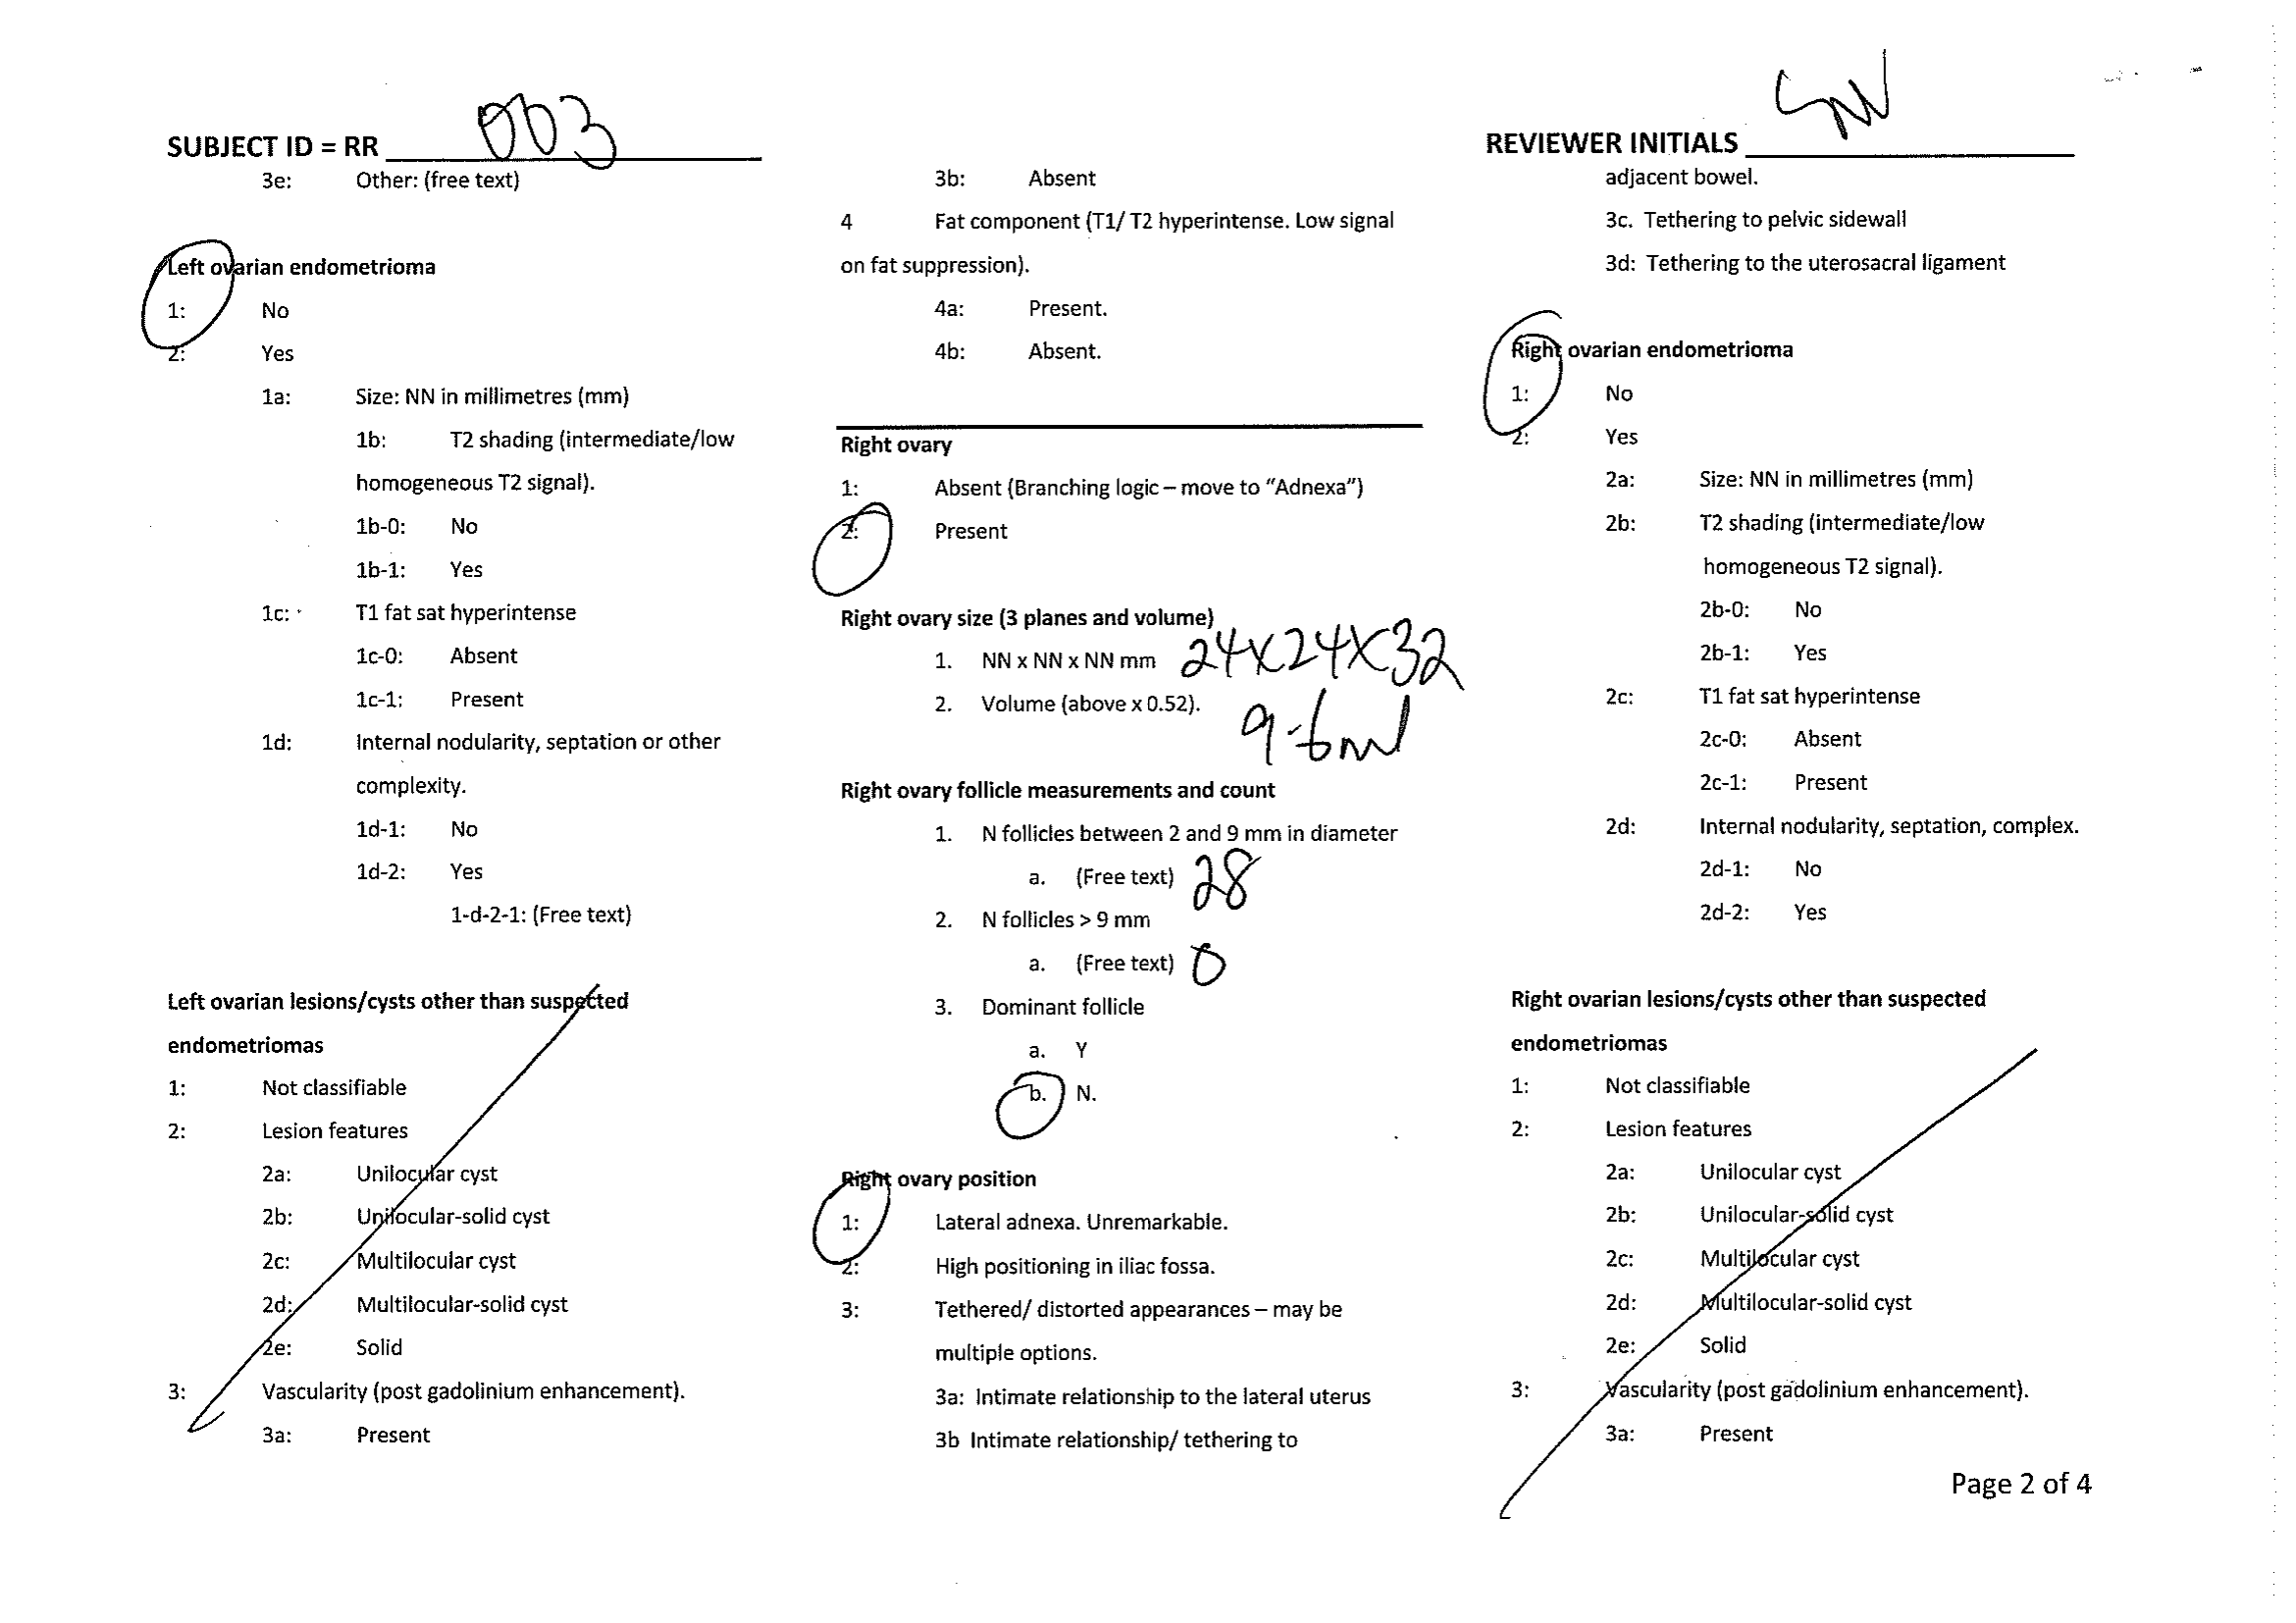 SUBJECT ID = RR 003
3e: Other: (free text)
Left ovarian endometrioma
1: No
2: Yes
1a: Size: NN in millimetres (mm)
1b: T2 shading (intermediate/low
homogeneous T2 signal).
1b-0: No
1b-1: Yes
1c: T1 fat sat hyperintense
1c-0: Absent
1c-1: Present
1d: Internal nodularity, septation or other
complexity.
1d-1: No
1d-2: Yes
1-d-2-1: (Free text)
Left ovarian lesions/cysts other than suspected
endometriomas
1: Not classifiable
2: Lesion features
2a: Unilocular cyst
2b: Unilocular-solid cyst
2c: Multilocular cyst
2d: Multilocular-solid cyst
2e: Solid
3: Vascularity (post gadolinium enhancement).
3a: Present
3b: Absent
4 Fat component (T1/ T2 hyperintense. Low signal
on fat suppression).
4a: Present.
4b: Absent.
Right ovary
1: Absent (Branching logic – move to “Adnexa”)
2: Present
Right ovary size (3 planes and volume)
1. NN x NN x NN mm 24x24x32
2. Volume (above x 0.52). 9.6ml
Right ovary follicle measurements and count
1. N follicles between 2 and 9 mm in diameter
a. (Free text) 28
2. N follicles > 9 mm
a. (Free text) 0
3. Dominant follicle
a. Y
b. N.
Right ovary position
1: Lateral adnexa. Unremarkable.
2: High positioning in iliac fossa.
3: Tethered/ distorted appearances – may be
multiple options.
3a: Intimate relationship to the lateral uterus
3b Intimate relationship/ tethering to
REVIEWER INITIALS
adjacent bowel.
3c. Tethering to pelvic sidewall
3d: Tethering to the uterosacral ligament
Right ovarian endometrioma
1: No
2: Yes
2a: Size: NN in millimetres (mm)
2b: T2 shading (intermediate/low
homogeneous T2 signal).
2b-0: No
2b-1: Yes
2c: T1 fat sat hyperintense
2c-0: Absent
2c-1: Present
2d: Internal nodularity, septation, complex.
2d-1: No
2d-2: Yes
Right ovarian lesions/cysts other than suspected
endometriomas
1: Not classifiable
2: Lesion features
2a: Unilocular cyst
2b: Unilocular-solid cyst
2c: Multilocular cyst
2d: Multilocular-solid cyst
2e: Solid
3: Vascularity (post gadolinium enhancement).
3a: Present
Page 2 of 4